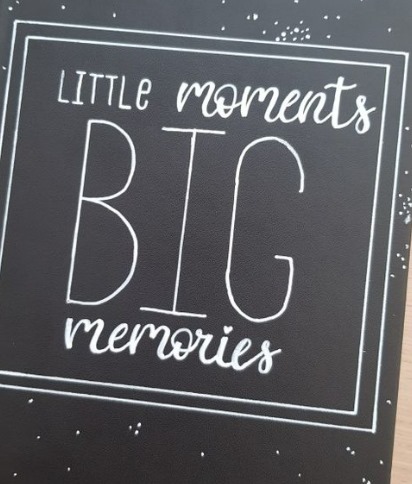 LITTLe moments
BIG
memories